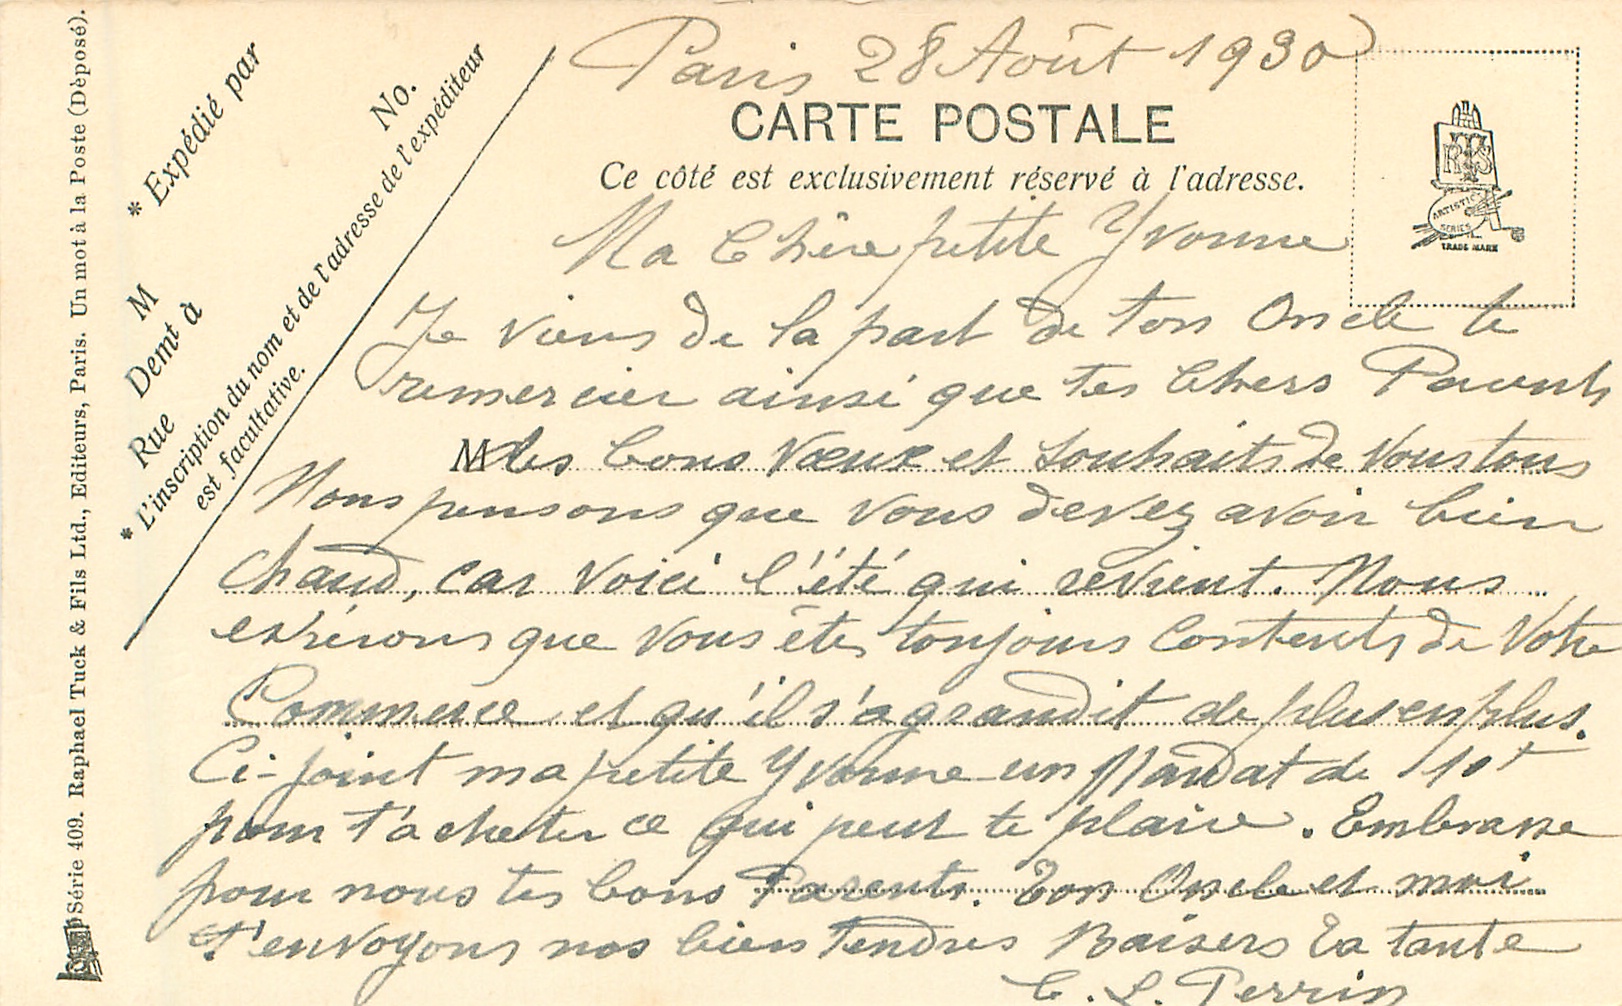 Paris 28 Août 1930
CARTE POSTALE
Ce côté est exclusivement réservé à l'adresse.
Ma Chère petite Yvonne
Je viens de la part de ton Oncle te
remercier ainsi que tes Chers Parents
M des bons Vœux et Souhaits de Vous tous
Nous pensons que vous devez avoir bien
chaud, car voici l'été qui revient. Nous
espérons que vous êtes toujours contents de Votre
Commerce et qu'il s'agrandit de plus en plus.
Ci-joint ma petite Yvonne un Mandat de 10f
pour t'acheter ce qui peut te plaire. Embrasse
pour nous tes bons Parents. Ton Oncle et moi
t'envoyons nos bien Tendres Baisers Ta tante
C. L. Perrin
* Expédié par
No.
M
Demt à
Rue
* L'inscription du nom et de l'adresse de l'expéditeur
est facultative.
Série 409. Raphael Tuck & Fils Ltd., Editeurs, Paris. Un mot à la Poste (Déposé).
RTS
ARTISTIC
SERIES
TRADE MARK